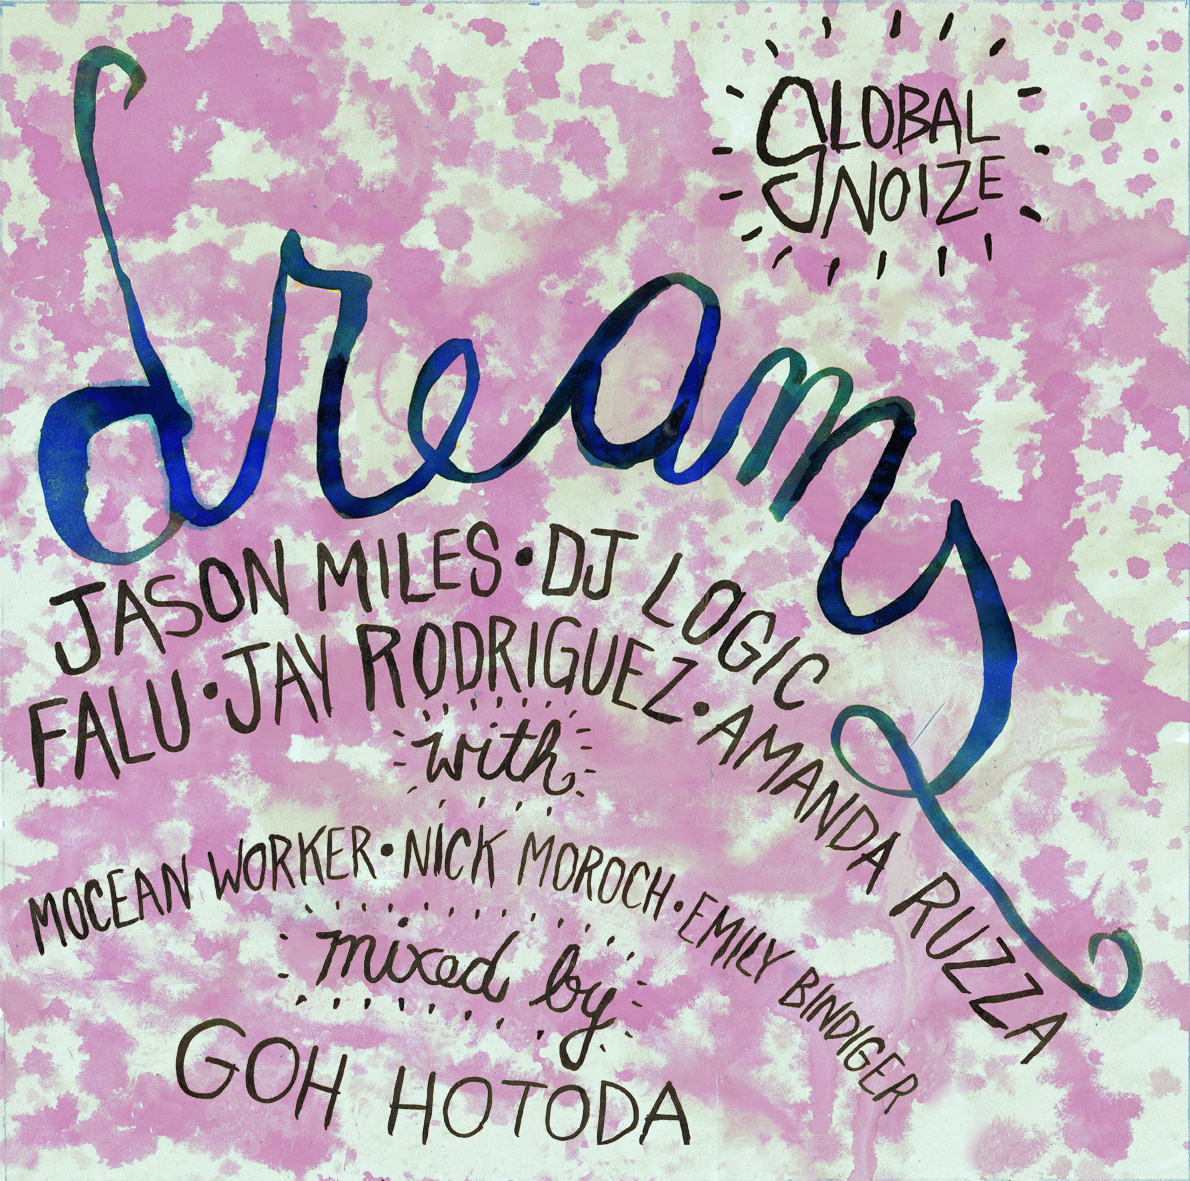 GLOBAL
NOIZE
dreams
JASON MILES • DJ LOGIC
FALU • JAY RODRIGUEZ • AMANDA RUZZA
with
MOCEAN WORKER • NICK MOROCH • EMILY BINDIGER
mixed by
GOH HOTODA